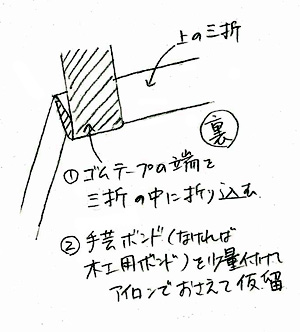 上の三折
裏
①ゴムテープの端を
三折の中に折り込む
②手芸ボンド(なければ
木工用ボンド)を少量付けて
アイロンでおさえて仮留